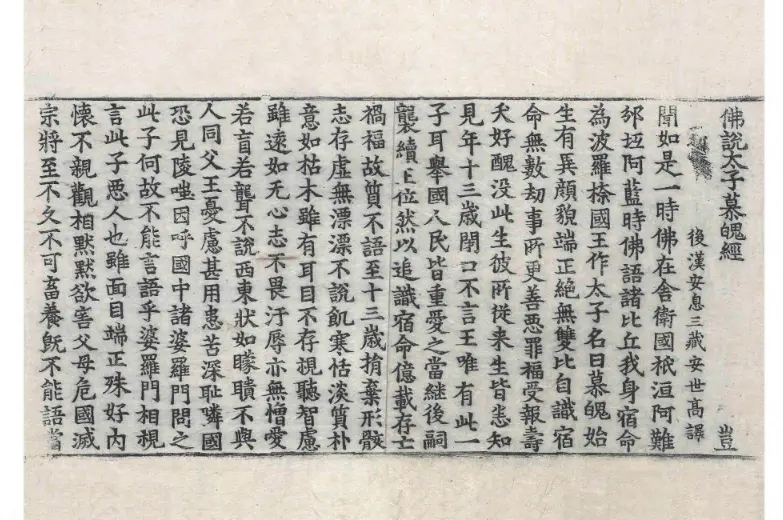 佛說太子慕魄經 豈
後漢安息三藏安世高譯
聞如是一時佛在舍衛國祇洹阿難
邠坻阿藍時佛語諸比丘我身宿命
為波羅捺國王作太子名曰慕魄始
生有異顏貌端正絶無雙比自識宿
命無數劫事所更善惡罪福受報壽
夭好醜没此生彼所從来生皆悉知
見年十三歲閉口不言王唯有此一
子耳舉國人民皆重愛之當継後嗣
襲續王位然以追識宿命億載存亡
禍福故質不語至十三歲捐棄形骸
志存虛無漂漂不說飢寒怗淡質朴
意如枯木雖有耳目不存視聽智慮
雖遠如无心志不畏汙辱亦無憎愛
若盲若聾不說西東狀如矇聵不與
人同父王憂慮甚用患苦深耻隣國
恐見陵嗤因呼國中諸婆羅門問之
此子何故不能言語乎婆羅門相視
言此子惡人也雖面目端正殊好内
懷不親觀相黙黙欲害父母危國滅
宗將至不久不可畜養旣不能語當